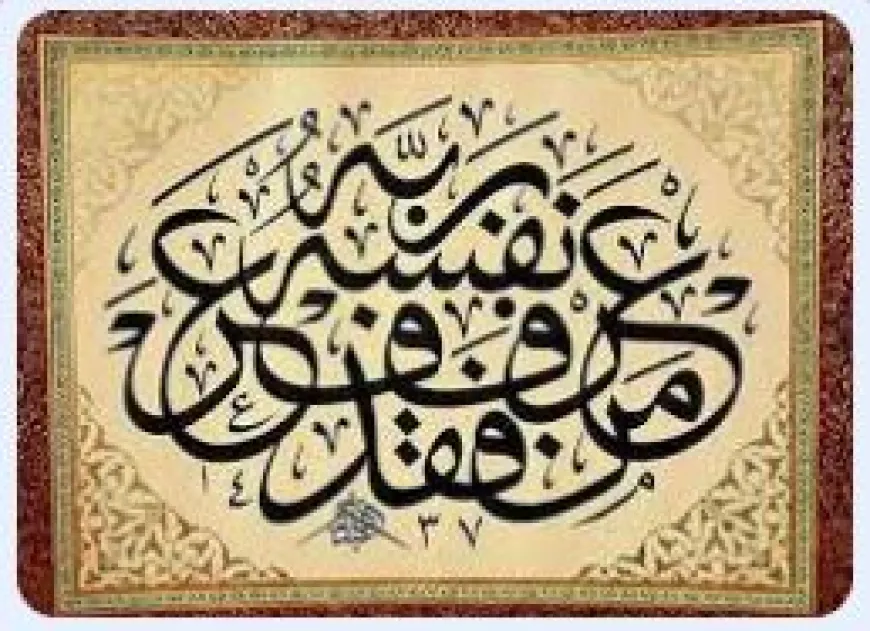 من عرف نفسه فقد عرف ربه
١٤٣٧